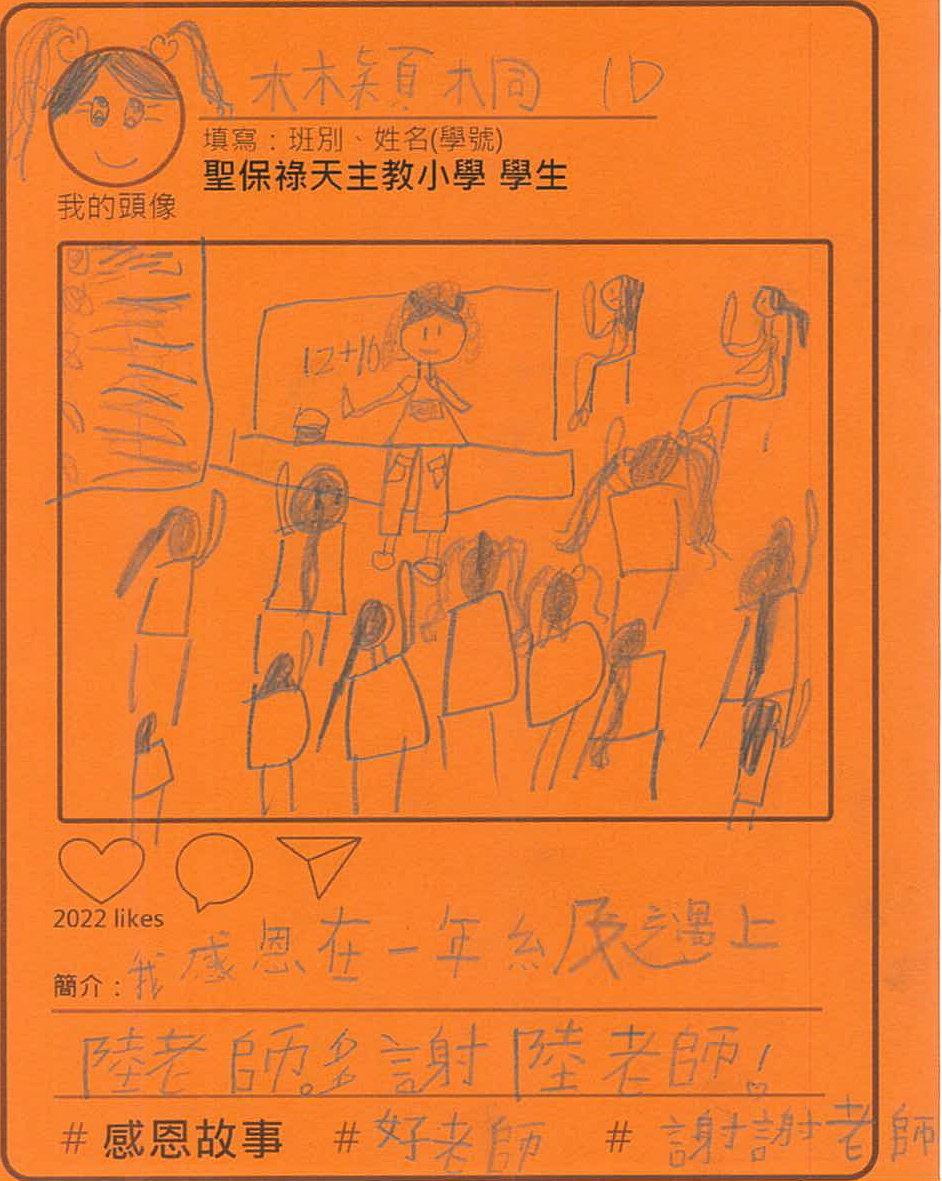 林穎桐 1D
填寫：班別、姓名(學號)
聖保祿天主教小學 學生
我的頭像
12+16
2022 likes
簡介：我感恩在一年級遇上
陸老師。多謝陸老師！
# 感恩故事 # 好老師 # 謝謝老師